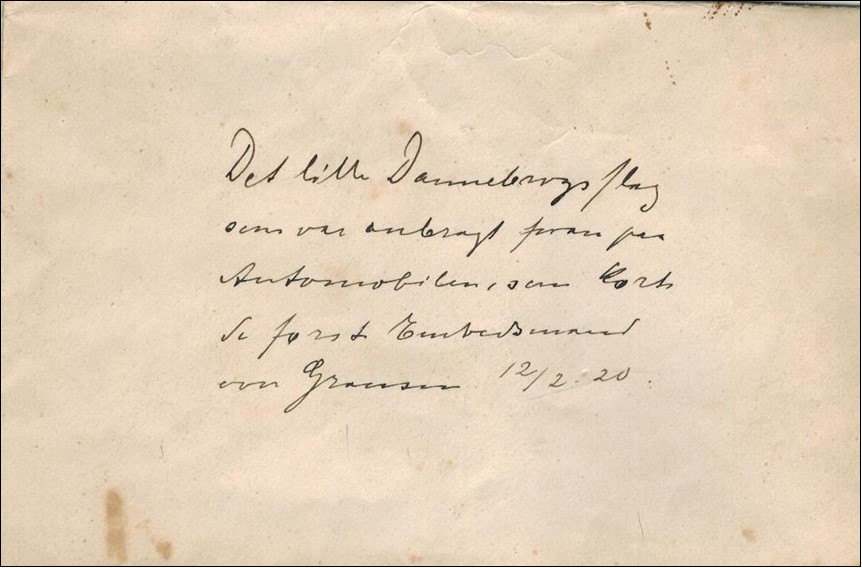 Det lille Dannebrogsflag
som var anbragt foran paa
Automobilen, som kørte
de første Embedsmænd
over Grænsen 12/2. 20.